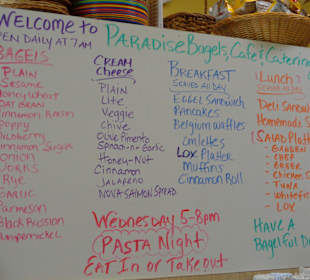 WELCOME TO PARADISE BAGELS, CAFE & CATERING
OPEN DAILY AT 7AM
BAGELS
PLAIN
Sesame
Honey Wheat
OAT BRAN
Cinnamon Raisin
Poppy
Blueberry
Cinnamon Sugar
ONION
WORKS
Rye
GARLIC
Parmesan
Black Russian
Pumpernickel
CREAM
Cheese
PLAIN
Lite
Veggie
Chive
Olive Pimento
Honey-Nut
Cinnamon
JALAPENO
NOVA SALMON SPREAD
BREAKFAST
SERVED ALL DAY
EGGEL SANDWICH
PANCAKES
Belgium Waffles
Omlettes
LOX Platter
Muffins
Cinnamon Roll
Lunch
SERVED ALL DAY
Deli Sandwi
Homemade S
SALAD Platt
- GARDEN
- CHEF
- GREEK
- Chicken S
- TUNA
- Whitefi
- LOX
WEDNESDAY 5-8pm
PASTA Night
EAT IN or TAKEOUT
HAVE A
Bagelful D